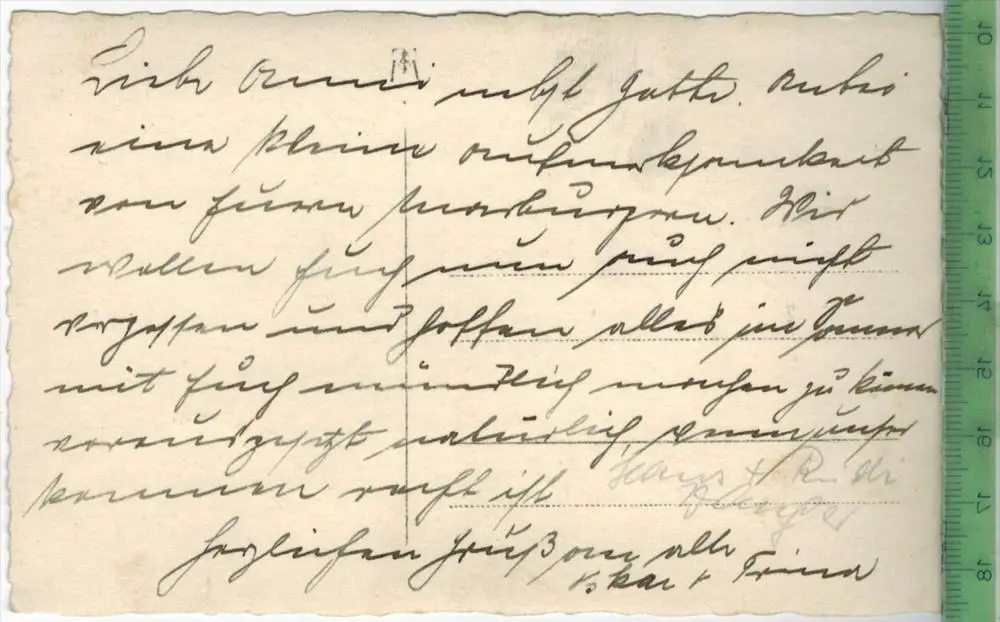 Liebe Anni nebst Gatte. Anbei
eine kleine Aufmerksamkeit
von Euern Marburgern. Wir
wollen Euch nun auch nicht
vergessen und hoffen alles im Sommer
mit Euch mündlich machen zu können
vorausgesetzt natürlich, wenn unser
kommen recht ist
Hans & Rudi
herzlichen Gruß an alle
Oskar &
10
11
12
13
14
15
16
17
18